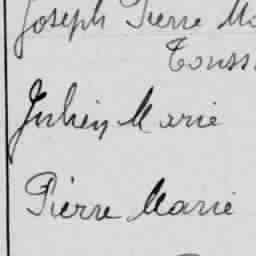 Joseph Pierre Ma
Touss
Julien Marie
Pierre Marie